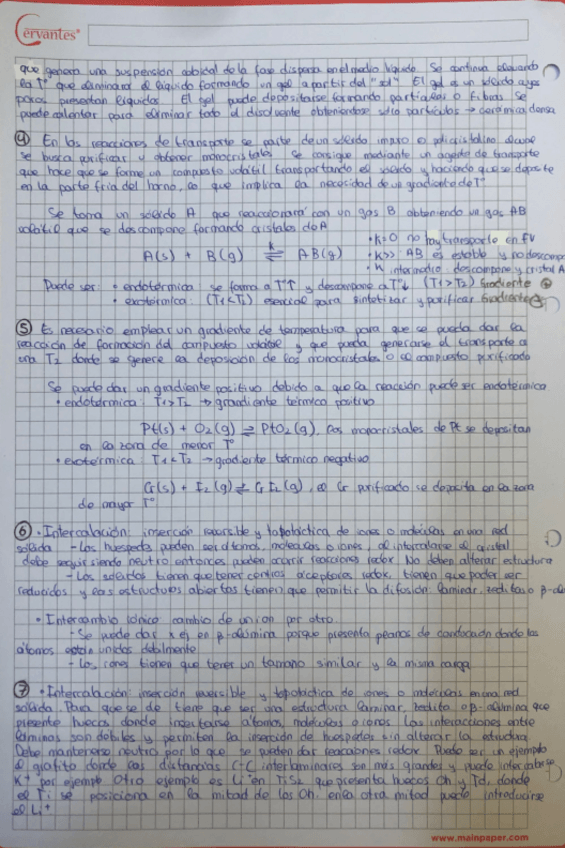 Cervantes
que genera una suspensión coloidal de la fase dispersa en el medio líquido. Se continua elevando
la Tº que eliminara el líquido formando un gel a partir del "sol". El gel es un sólido cuyos
poros presentan líquidos. El gel puede depositarse formando partículas o fibras. Se
puede calentar para eliminar todo el disolvente obteniendose solo partículas → cerámica densa
④ En las reacciones de transporte se parte de un sólido impuro o policristalino donde
se busca purificar y obtener monocristales. Se consigue mediante un agente de transporte
que hace que se forme un compuesto volátil transportando el sólido y haciendo que se deposite
en la parte fria del horno, lo que implica la necesidad de un gradiente de Tº
Se toma un sólido A que reaccionará con un gas B obteniendo un gas AB
volátil que se descompone formando cristales de A
• K=0 no hay transporte en FV
A(s) + B(g) ⇌ AB(g)
k
• K>> AB es estable y no descomp
• K intermedio: descompone y cristal A
Puede ser: • endotérmica: se forma a Tº↑ y descompone a Tº↓ (T1>T2) Gradiente ⊕
• exotérmica: (T1<T2) esencial para sintetizar y purificar Gradiente ⊖
⑤ Es necesario emplear un gradiente de temperatura para que se pueda dar la
reacción de formación del compuesto volátil y que pueda generarse el transporte a
una T2 donde se genere la deposición de los monocristales o el compuesto purificado
Se puede dar un gradiente positivo debido a que la reacción puede ser endotérmica
• endotérmica: T1>T2 → gradiente térmico positivo
Pt(s) + O2(g) ⇌ PtO2(g), los monocristales de Pt se depositan
en la zona de menor Tº
• exotérmica: T1<T2 → gradiente térmico negativo
Cr(s) + I2(g) ⇌ CrI2(g), el Cr purificado se deposita en la zona
de mayor Tº
⑥ • Intercalación: inserción reversible y topotáctica de iones o moléculas en una red
sólida - Los huespedes pueden ser átomos, moléculas o iones, al intercalarse el cristal
debe seguir siendo neutro entonces pueden ocurrir reacciones redox. No deben alterar estructura
- Los sólidos tienen que tener centros aceptores redox, tienen que poder ser
reducidos y las estructuras abiertas tienen que permitir la difusión: laminar, zeolita o β-
• Intercambio iónico: cambio de un ion por otro.
- Se puede dar x ej en β-alúmina porque presenta planos de conducción donde los
átomos están unidos debilmente
- Los iones tienen que tener un tamaño similar y la misma carga
⑦ • Intercalación: inserción reversible y topotáctica de iones o moléculas en una red
sólida. Para que se de tiene que ser una estructura laminar, zeolita o β-alúmina que
presente huecos donde insertarse átomos, moléculas o iones. Las interacciones entre
láminas son débiles y permiten la inserción de huespedes sin alterar la estructura
Debe mantenerse neutro por lo que se pueden dar reacciones redox. Puede ser un ejemplo
el grafito donde las distancias C-C interlaminares son más grandes y puede intercalarse
K+ por ejemplo. Otro ejemplo es Li+ en TiS2 que presenta huecos Oh y Td, donde
el Ti se posiciona en la mitad de los Oh, en la otra mitad puede introducirse
el Li+
www.mainpaper.com